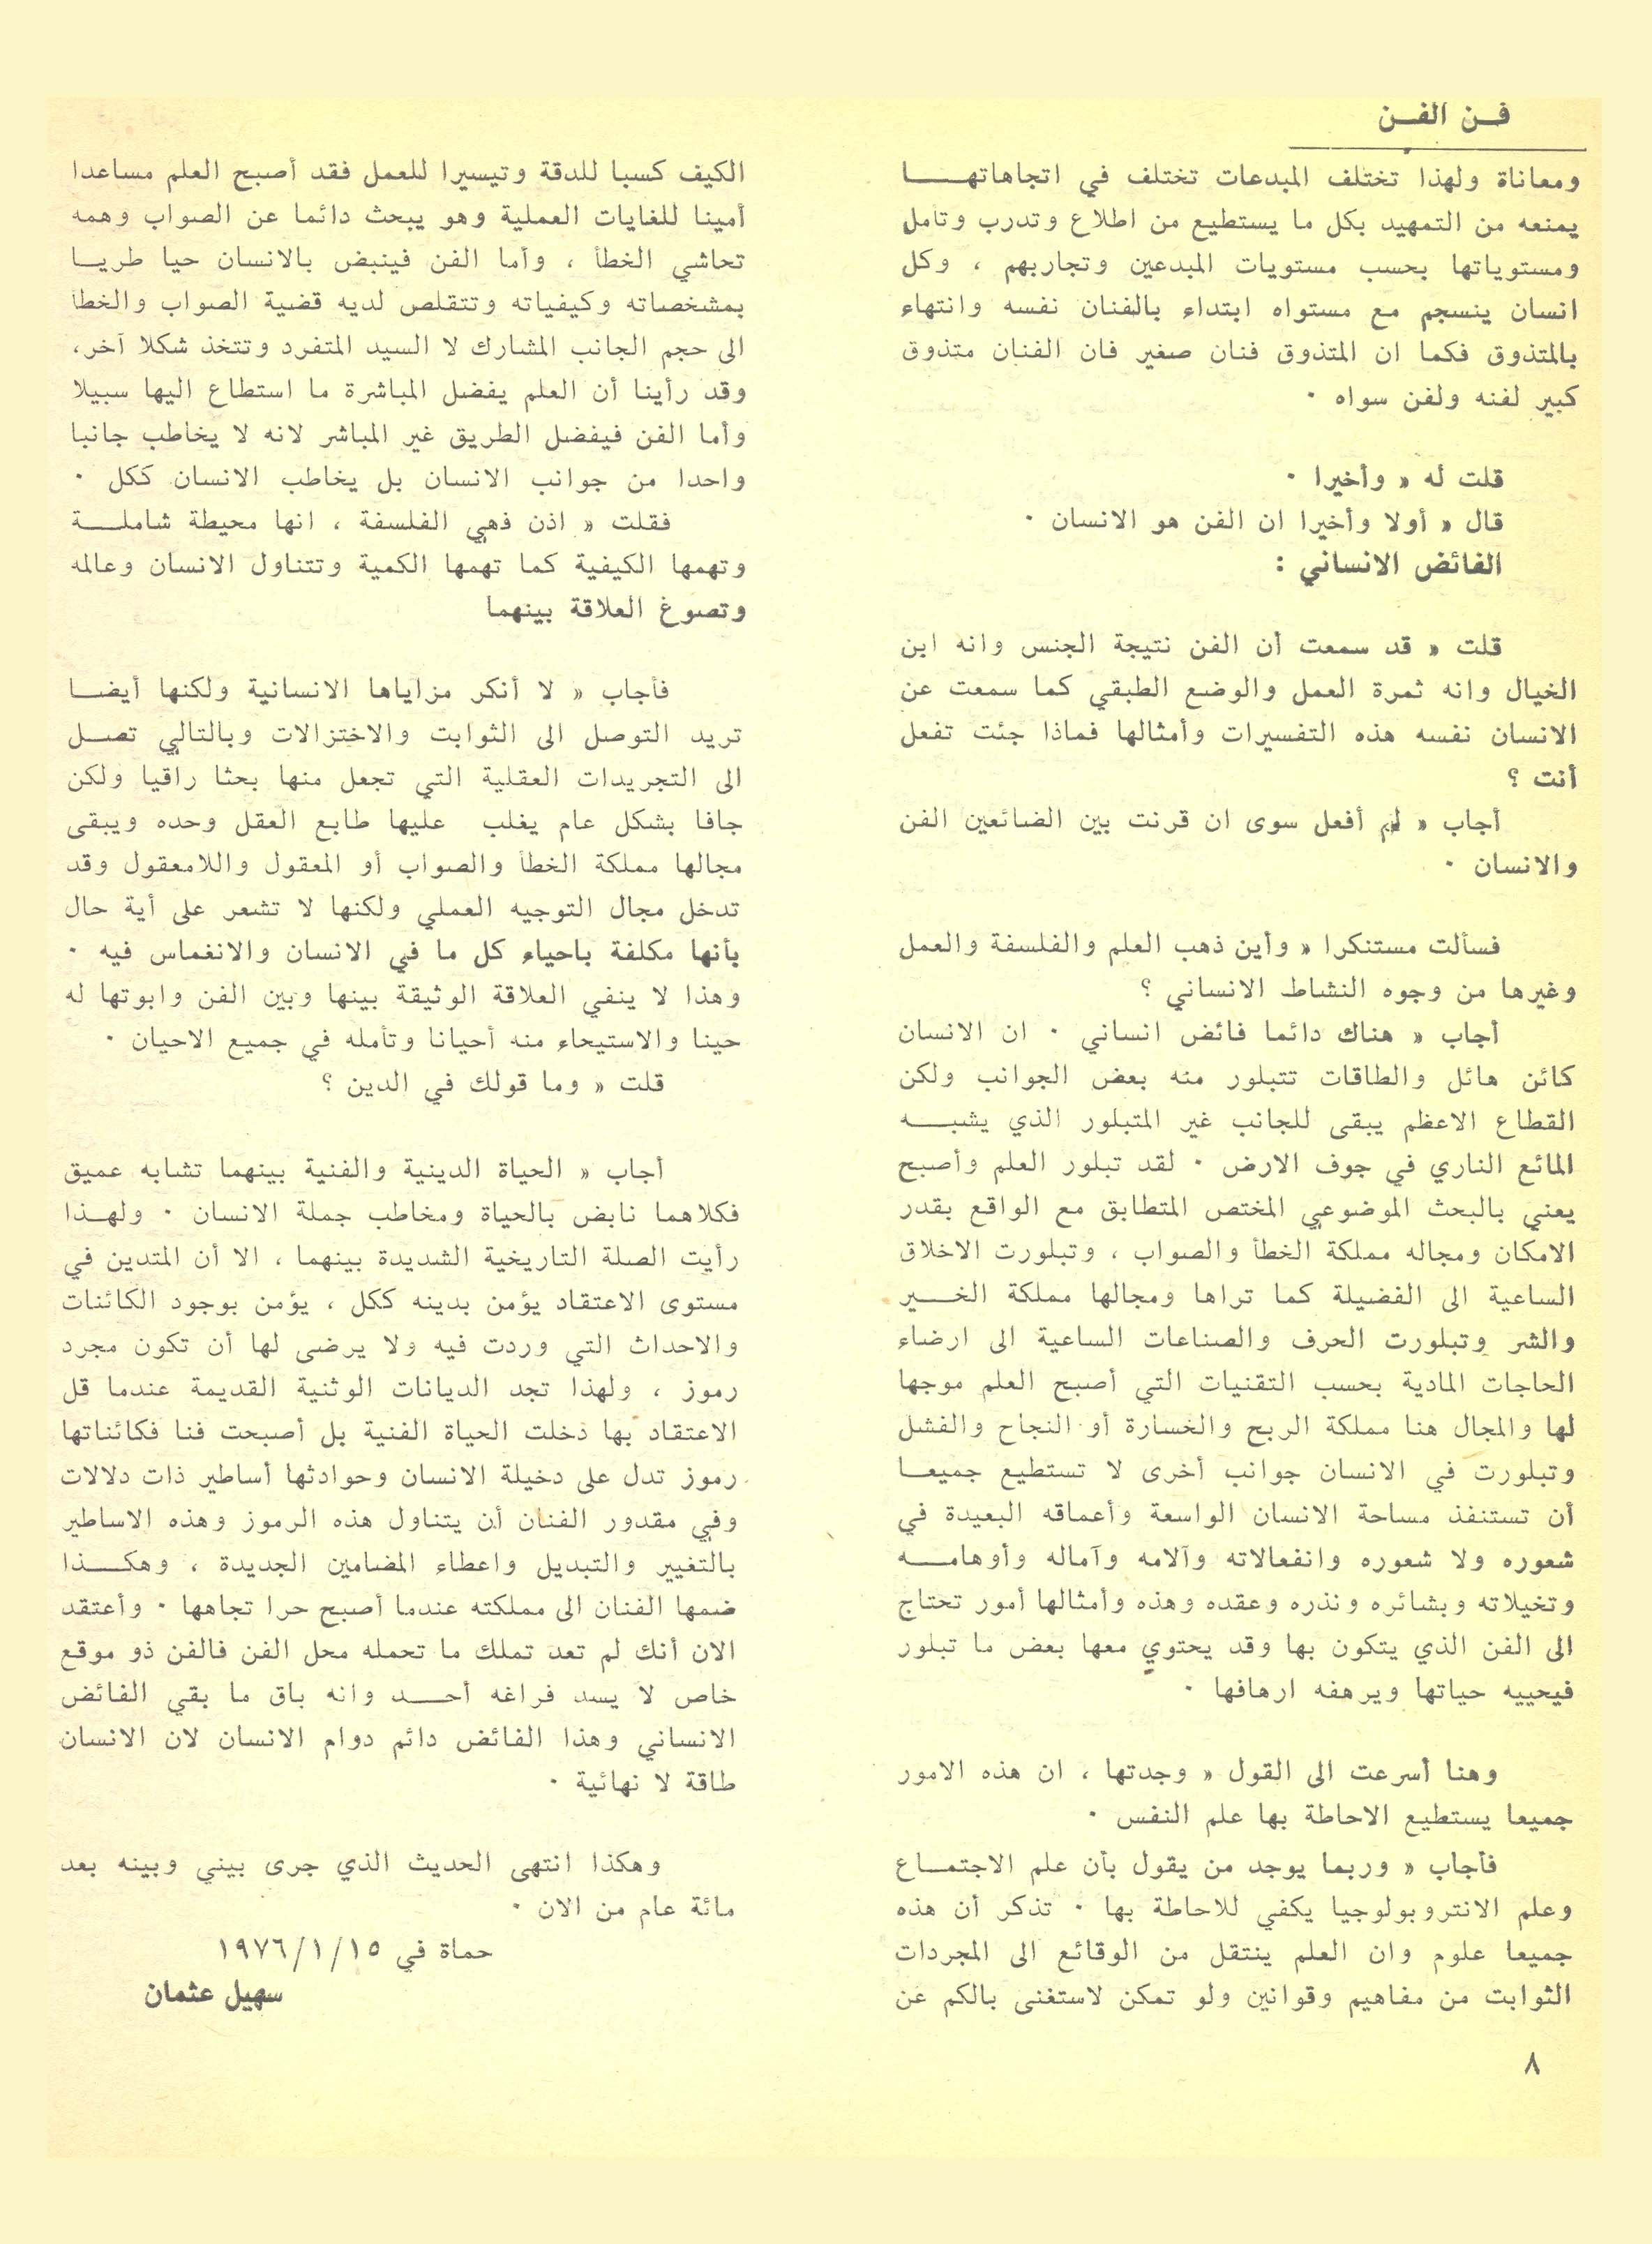 فـــن الفـــن
ومعاناة ولهذا تختلف المبدعات تختلف في اتجاهاتهـــا
يمنعه من التمهيد بكل ما يستطيع من اطلاع وتدرب وتأمل
ومستوياتها بحسب مستويات المبدعين وتجاربهم ، وكل
انسان ينسجم مع مستواه ابتداء بالفنان نفسه وانتهاء
بالمتذوق فكما ان المتذوق فنان صغير فان الفنان متذوق
كبير لفنه ولفن سواه ٠
قلت له « وأخيرا ٠
قال « أولا وأخيرا ان الفن هو الانسان ٠
الفائض الانساني :
قلت « قد سمعت أن الفن نتيجة الجنس وانه ابن
الخيال وانه ثمرة العمل والوضع الطبقي كما سمعت عن
الانسان نفسه هذه التفسيرات وأمثالها فماذا جئت تفعل
أنت ؟
أجاب « لم أفعل سوى ان قرنت بين الضائعين الفن
والانسان ٠
فسألت مستنكرا « وأين ذهب العلم والفلسفة والعمل
وغيرها من وجوه النشاط الانساني ؟
أجاب « هناك دائما فائض انساني ٠ ان الانسان
كائن هائل والطاقات تتبلور منه بعض الجوانب ولكن
القطاع الاعظم يبقى للجانب غير المتبلور الذي يشبـــه
المائع الناري في جوف الارض ٠ لقد تبلور العلم وأصبح
يعني بالبحث الموضوعي المختص المتطابق مع الواقع بقدر
الامكان ومجاله مملكة الخطأ والصواب ، وتبلورت الاخلاق
الساعية الى الفضيلة كما تراها ومجالها مملكة الخـــير
والشر وتبلورت الحرف والصناعات الساعية الى ارضاء
الحاجات المادية بحسب التقنيات التي أصبح العلم موجها
لها والمجال هنا مملكة الربح والخسارة أو النجاح والفشل
وتبلورت في الانسان جوانب أخرى لا تستطيع جميعـــا
أن تستنفذ مساحة الانسان الواسعة وأعماقه البعيدة في
شعوره ولا شعوره وانفعالاته وآلامه وآماله وأوهامـــه
وتخيلاته وبشائره ونذره وعقده وهذه وأمثالها أمور تحتاج
الى الفن الذي يتكون بها وقد يحتوي معها بعض ما تبلور
فيحييه حياتها ويرهفه ارهافها ٠
وهنا أسرعت الى القول « وجدتها ، ان هذه الامور
جميعا يستطيع الاحاطة بها علم النفس ٠
فأجاب « وربما يوجد من يقول بأن علم الاجتمـــاع
وعلم الانتروبولوجيا يكفي للاحاطة بها ٠ تذكر أن هذه
جميعا علوم وان العلم ينتقل من الوقائع الى المجردات
الثوابت من مفاهيم وقوانين ولو تمكن لاستغنى بالكم عن
الكيف كسبا للدقة وتيسيرا للعمل فقد أصبح العلم مساعدا
أمينا للغايات العملية وهو يبحث دائما عن الصواب وهمه
تحاشي الخطأ ، وأما الفن فينبض بالانسان حيا طريـــا
بمشخصاته وكيفياته وتتقلص لديه قضية الصواب والخطأ
الى حجم الجانب المشارك لا السيد المتفرد وتتخذ شكلا آخر،
وقد رأينا أن العلم يفضل المباشرة ما استطاع اليها سبيلا
وأما الفن فيفضل الطريق غير المباشر لانه لا يخاطب جانبا
واحدا من جوانب الانسان بل يخاطب الانسان ككل ٠
فقلت « اذن فهي الفلسفة ، انها محيطة شاملـــة
وتهمها الكيفية كما تهمها الكمية وتتناول الانسان وعالمه
وتصوغ العلاقة بينهما
فأجاب « لا أنكر مزاياها الانسانية ولكنها أيضـــا
تريد التوصل الى الثوابت والاختزالات وبالتالي تصـــل
الى التجريدات العقلية التي تجعل منها بحثا راقيا ولكن
جافا بشكل عام يغلب عليها طابع العقل وحده ويبقى
مجالها مملكة الخطأ والصواب أو المعقول واللامعقول وقد
تدخل مجال التوجيه العملي ولكنها لا تشعر على أية حال
بأنها مكلفة باحياء كل ما في الانسان والانغماس فيه ٠
وهذا لا ينفي العلاقة الوثيقة بينها وبين الفن وابوتها له
حينا والاستيحاء منه أحيانا وتأمله في جميع الاحيان ٠
قلت « وما قولك في الدين ؟
أجاب « الحياة الدينية والفنية بينهما تشابه عميق
فكلاهما نابض بالحياة ومخاطب جملة الانسان ٠ ولهـــذا
رأيت الصلة التاريخية الشديدة بينهما ، الا أن المتدين في
مستوى الاعتقاد يؤمن بدينه ككل ، يؤمن بوجود الكائنات
والاحداث التي وردت فيه ولا يرضى لها أن تكون مجرد
رموز ، ولهذا تجد الديانات الوثنية القديمة عندما قل
الاعتقاد بها دخلت الحياة الفنية بل أصبحت فنا فكائناتها
رموز تدل على دخيلة الانسان وحوادثها أساطير ذات دلالات
وفي مقدور الفنان أن يتناول هذه الرموز وهذه الاساطير
بالتغيير والتبديل واعطاء المضامين الجديدة ، وهكـــذا
ضمها الفنان الى مملكته عندما أصبح حرا تجاهها ٠ وأعتقد
الان أنك لم تعد تملك ما تحمله محل الفن فالفن ذو موقع
خاص لا يسد فراغه أحـــد وانه باق ما بقي الفائض
الانساني وهذا الفائض دائم دوام الانسان لان الانسان
طاقة لا نهائية ٠
وهكذا انتهى الحديث الذي جرى بيني وبينه بعد
مائة عام من الان ٠
حماة في ١٥/١/١٩٧٦
سهيل عثمان
٨